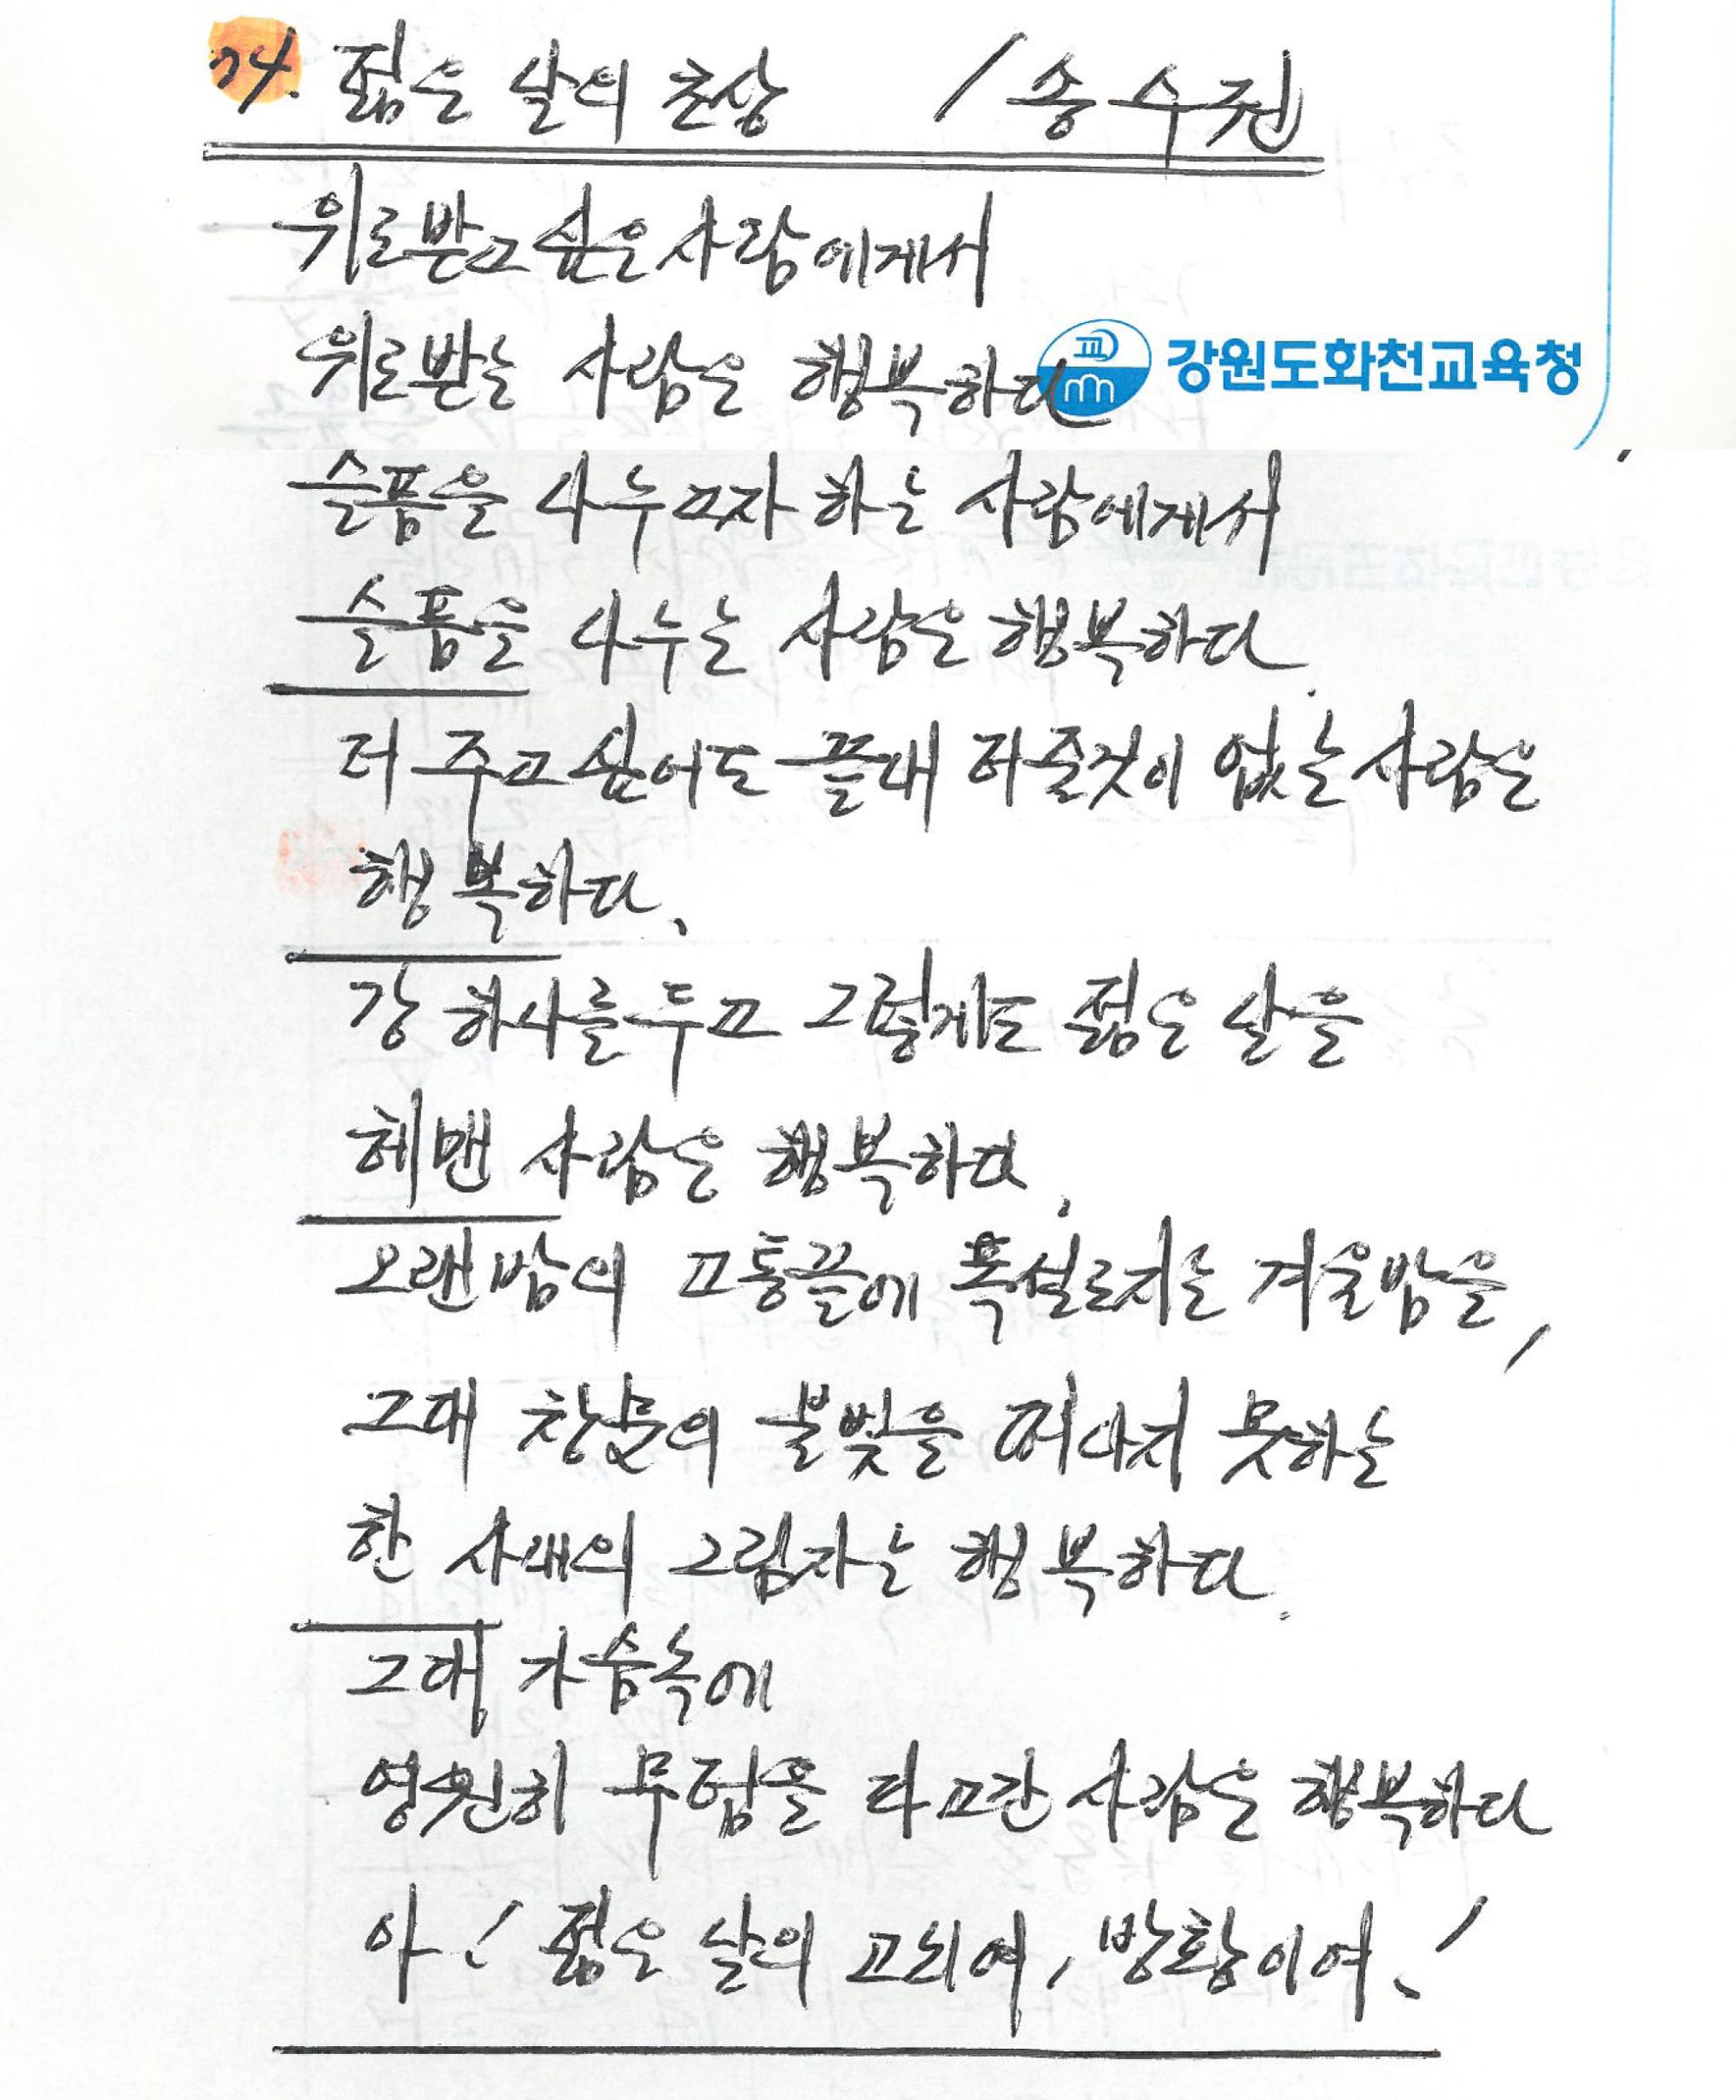 74. 젊은 날의 초상 / 송수권
위로받고 싶은 사람에게서
위로받는 사람은 행복하다
강원도화천교육청
슬픔을 나누고자 하는 사람에게서
슬픔을 나누는 사람은 행복하다.
더 주고 싶어도 끝내 더 줄것이 없는 사람은
행복하다.
강 하나를 두고 그렇게도 젊은 날을
헤맨 사람은 행복하다.
오랜 밤의 고통 끝에 폭설로 지는 겨울밤을,
그대 창문의 불빛을 떠나지 못하는
한 사내의 그림자는 행복하다.
그대 가슴속에
영원히 무덤을 파고간 사람은 행복하다
아! 젊은 날의 고뇌여, 방황이여!